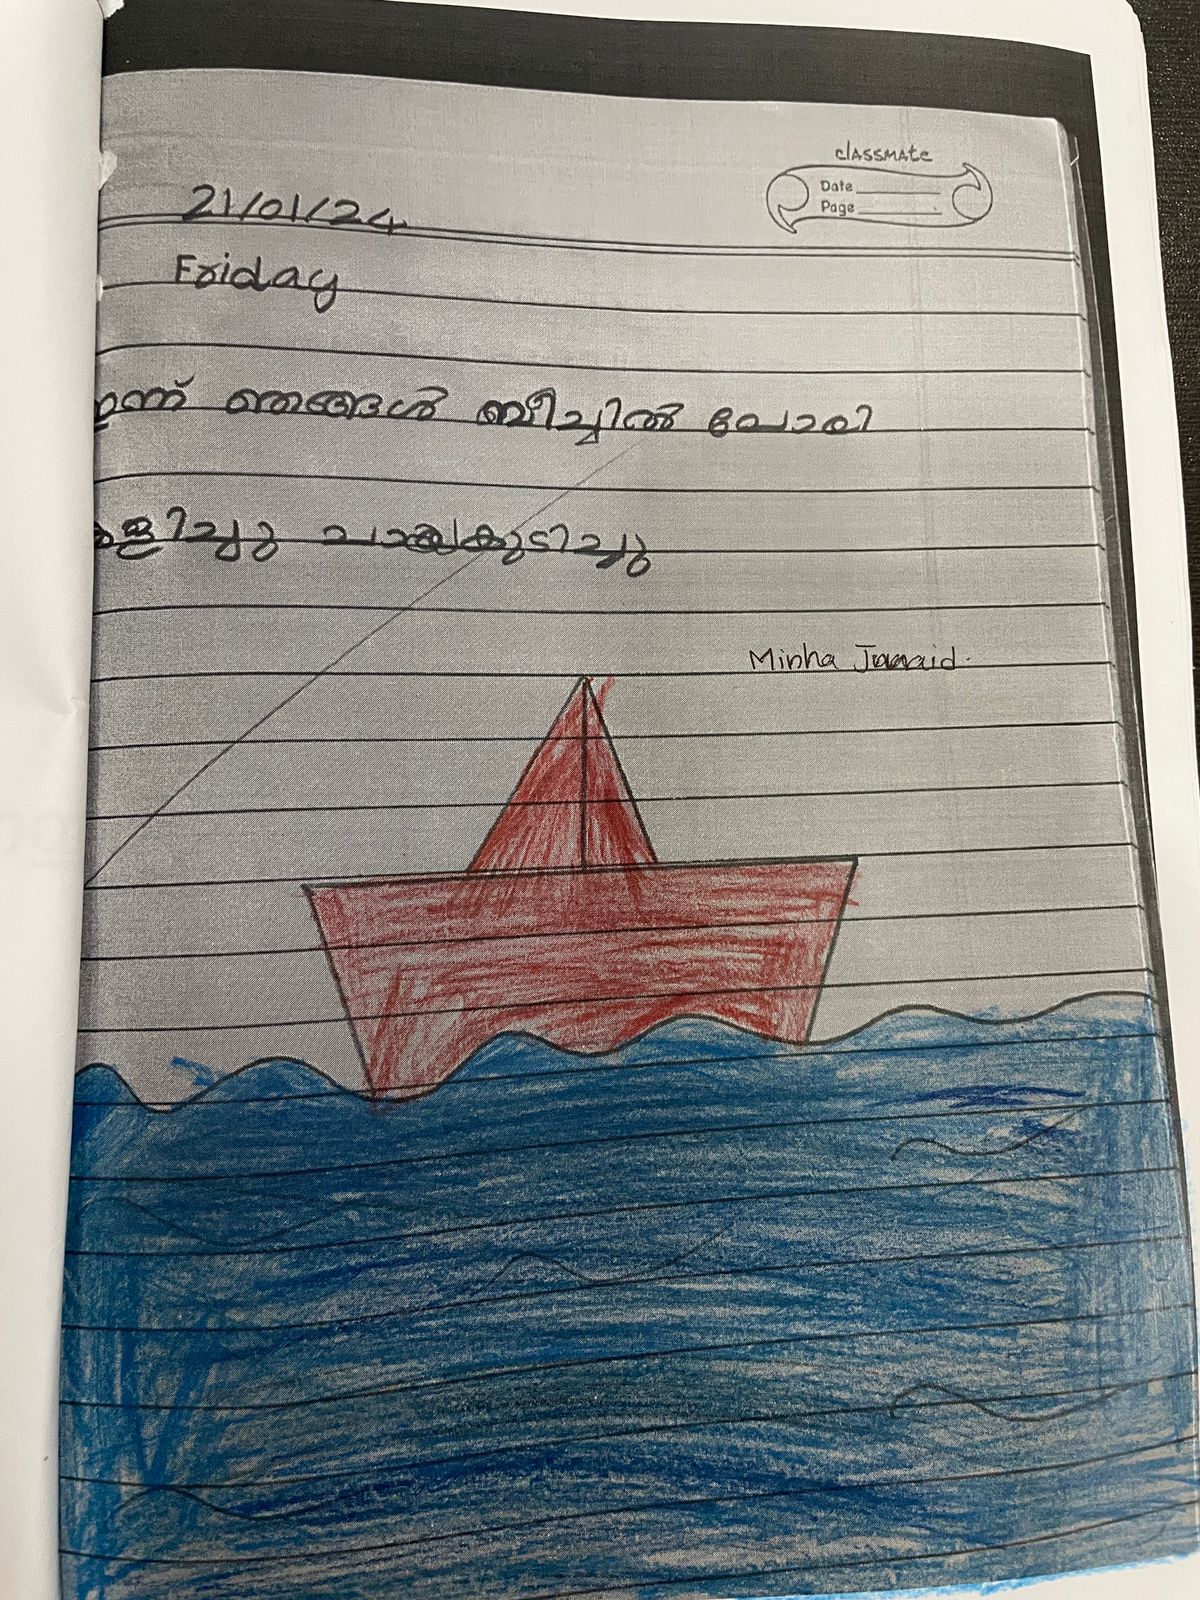 classmate
Date
Page
21/01/24
Friday
ഇന്ന് ഞങ്ങൾ ബീച്ചിൽ പോയി
കളിച്ചു ചായകുടിച്ചു
Minha Junaid.